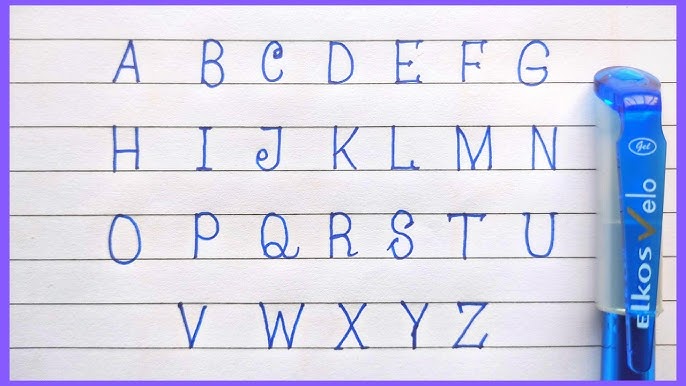 A B C D E F G
H I J K L M N
O P Q R S T U
V W X Y Z
Elkos Velo
Gel